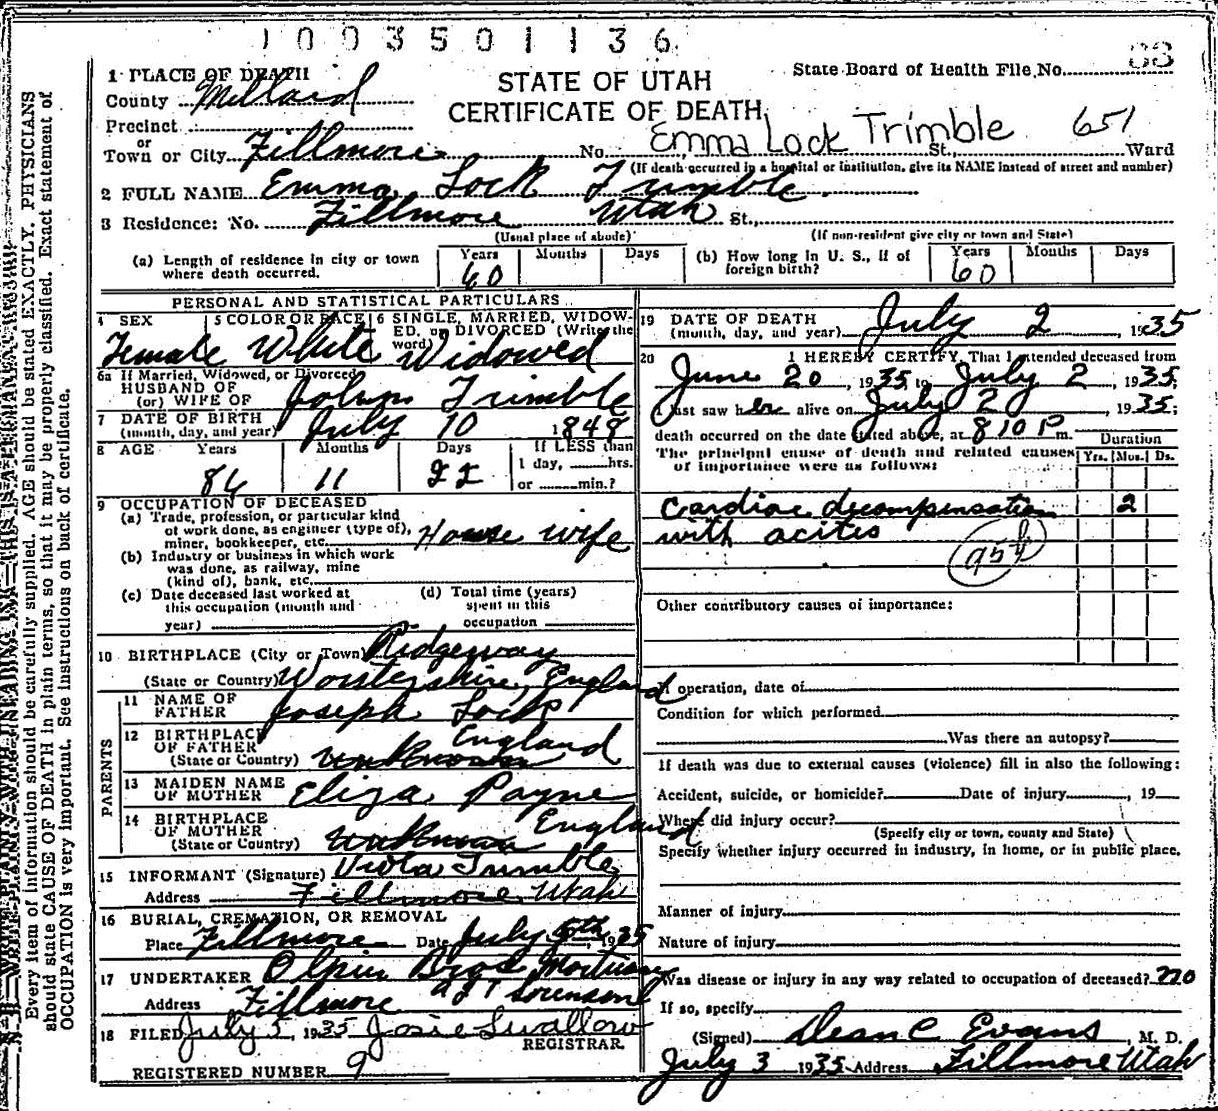 1003501136
83
1 PLACE OF DEATH
County Millard
STATE OF UTAH
CERTIFICATE OF DEATH
State Board of Health File No.
Precinct
or
Town or City Fillmore No. Emma Lock Trimble St., 651 Ward
(If death occurred in a hospital or institution, give its NAME instead of street and number)
2 FULL NAME Emma Lock Trimble
3 Residence: No. Fillmore Utah St.,
(Usual place of abode) (If non-resident give city or town and State)
(a) Length of residence in city or town where death occurred. Years 60 Months Days
(b) How long in U. S., if of foreign birth? Years 60 Months Days
PERSONAL AND STATISTICAL PARTICULARS
4 SEX Female
5 COLOR OR RACE White
6 SINGLE, MARRIED, WIDOWED, or DIVORCED (Write the word) Widowed
6a If Married, Widowed, or Divorced
HUSBAND OF
(or) WIFE OF Trimble
7 DATE OF BIRTH
(month, day, and year) July 10 1848
8 AGE Years 86 Months 11 Days 22 If LESS than
1 day, hrs.
or min.?
9 OCCUPATION OF DECEASED
(a) Trade, profession, or particular kind
of work done, as engineer (type of),
miner, bookkeeper, etc. House wife
(b) Industry or business in which work
was done, as railway, mine
(kind of), bank, etc.
(c) Date deceased last worked at
this occupation (month and
year)
(d) Total time (years)
spent in this
occupation
10 BIRTHPLACE (City or Town) Ridgeway
(State or Country) Worstershire, England
11 NAME OF
FATHER Joseph Lock
12 BIRTHPLACE
OF FATHER England
(State or Country) unknown
PARENTS
13 MAIDEN NAME
OF MOTHER Eliza Payne
14 BIRTHPLACE
OF MOTHER England
(State or Country) unknown
15 INFORMANT (Signature) Viola Trimble
Address Fillmore Utah
16 BURIAL, CREMATION, OR REMOVAL
Place Fillmore Date July 5th, 1935
17 UNDERTAKER Olpin Bros Mortuary
Address Fillmore Sorenson
18 FILED July 5, 1935 Josie Swallow
REGISTRAR.
REGISTERED NUMBER 9
19 DATE OF DEATH
(month, day, and year) July 2 1935
20 I HEREBY CERTIFY, That I attended deceased from
June 20, 1935, to July 2, 1935;
I last saw her alive on July 2, 1935;
death occurred on the date stated above, at 8 10 P m.
The principal cause of death and related causes
of importance were as follows:
Duration
Yrs. Mos. Ds.
Cardiac decompensation 2
with acites
Other contributory causes of importance:
If operation, date of
Condition for which performed
Was there an autopsy?
If death was due to external causes (violence) fill in also the following:
Accident, suicide, or homicide? Date of injury, 19
Where did injury occur?
(Specify city or town, county and State)
Specify whether injury occurred in industry, in home, or in public place.
Manner of injury
Nature of injury
Was disease or injury in any way related to occupation of deceased? no
If so, specify
(Signed) Dean C Evans, M. D.
July 3 1935 Address Fillmore Utah
Every item of information should be carefully supplied. AGE should be stated EXACTLY. PHYSICIANS
should state CAUSE OF DEATH in plain terms, so that it may be properly classified. Exact statement of
OCCUPATION is very important. See instructions on back of certificate.